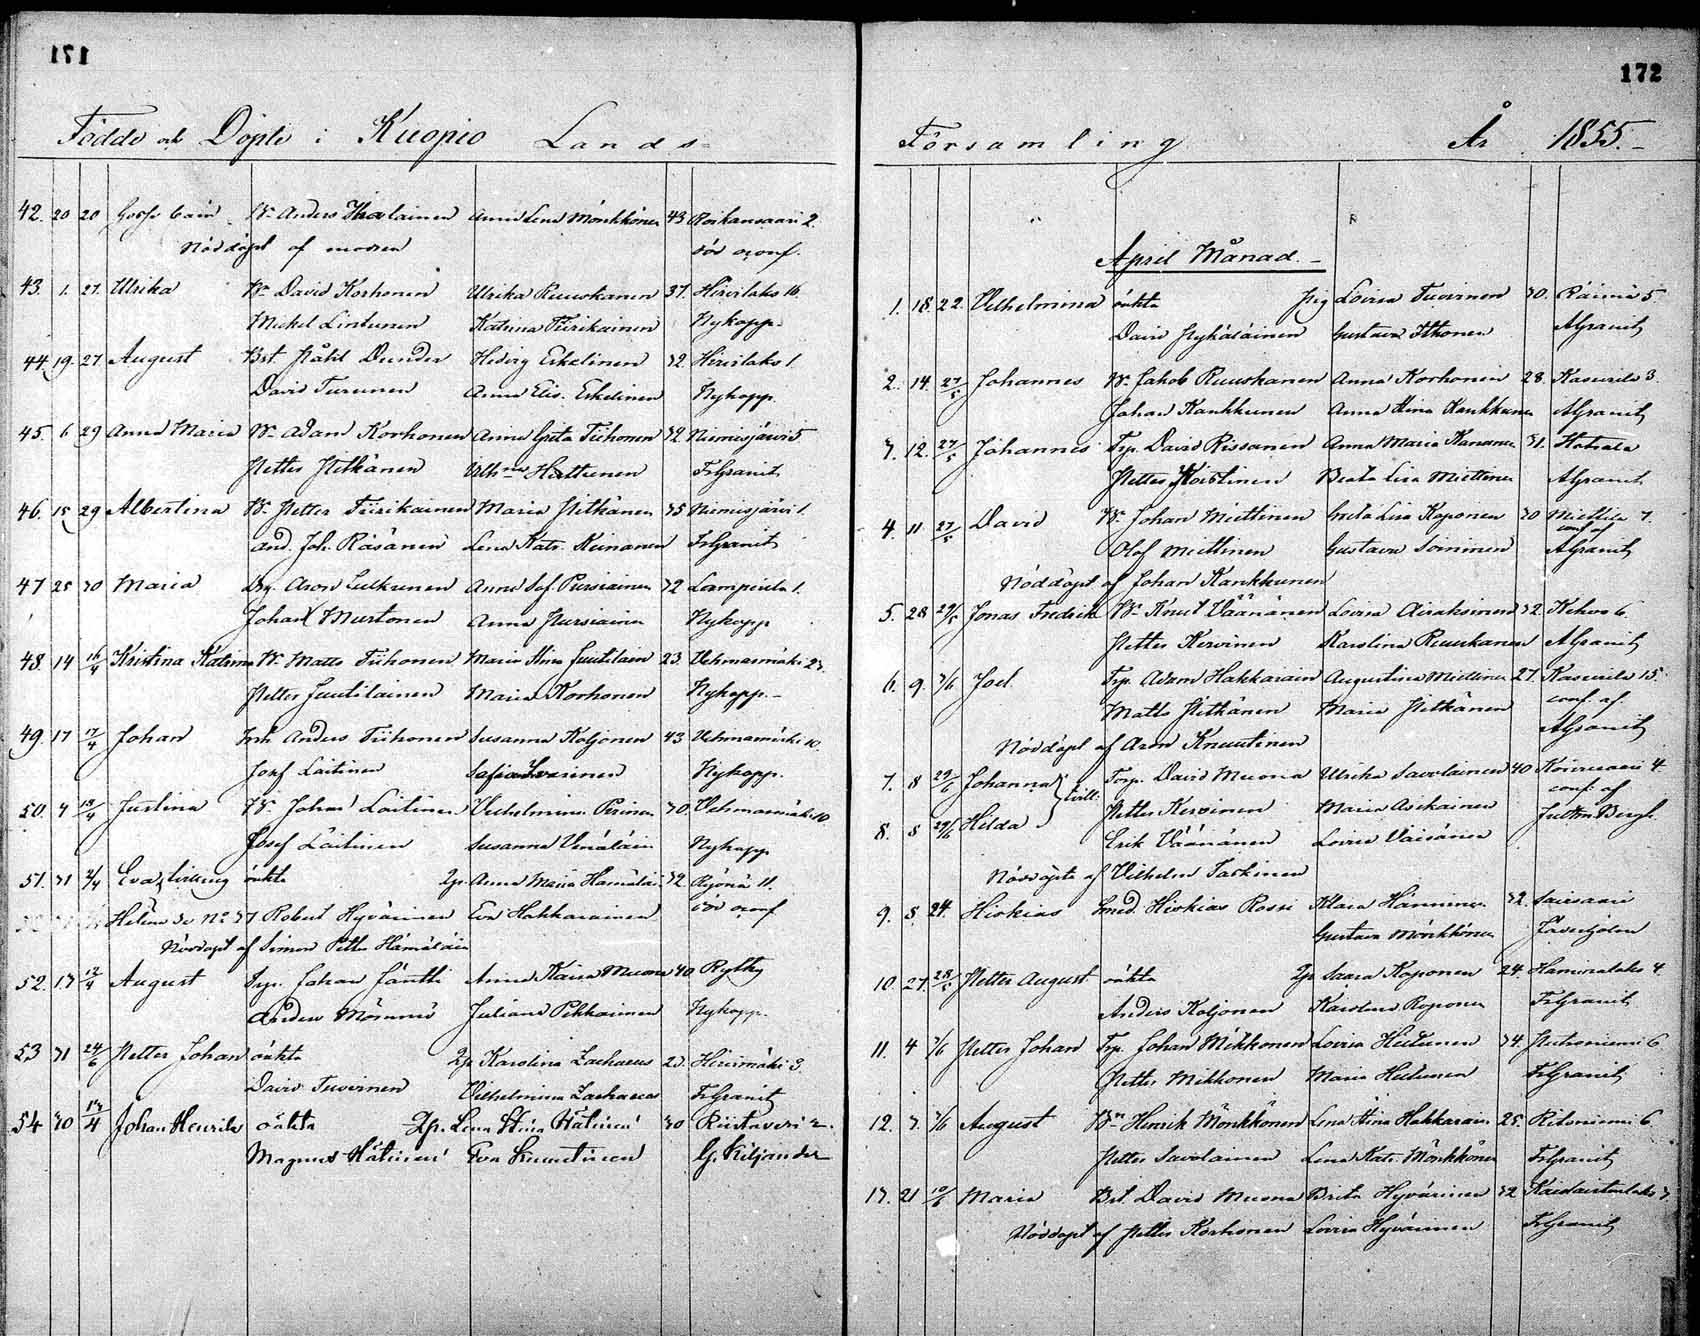 171
Födde och Döpte i Kuopio Lands-
42. 20 20 Gossebarn Anders Anna Lena Mönkkönen 43 2.
Nöddöpt af modren
43. 1. 27. Ulrika Bn David Korhonen Ulrika Ruuskanen 37. Hirvilaks 16.
Mickel Lintunen Katrina Tiirikainen Nykopp.
44. 19. 27. August Bst. Påhl Dunder Hedvig Eskelinen 32. Hirvilaks 1.
David Turunen Anna Elis. Eskelinen Nykopp.
45. 6 29 Anna Maria Bn Adam Korhonen Anna Greta Tiihonen 32 Niemisjärvi 5
Petter Pitkänen Hattunen FrGranit
46. 15 29 Albertina Bn Petter Tiirikainen Maria Pitkänen 35 Niemisjärvi 1.
And. Joh. Räsänen Lena Katr. FrGranit
47 25 30 Maria Drg. Aron Anna Sof. Pursiainen 32 1.
Johan Murtonen Anna Pursiainen Nykopp
48. 14 16/4 Kristina Katrina Bn Matts Tiihonen Maria Stina Juutilain 23. Vehmasmäki 23.
Petter Juutilainen Maria Korhonen Nykopp.
49. 17 17/4 Johan Inh. Anders Tiihonen Susanna Koljonen 43 Vehmasmäki 10.
Josef Laitinen Sofia Nykopp.
50. 4 18/4 Justina Bn Johan Laitinen Vilhelmina 30. Vehmasmäki 10
Josef Laitinen Susanna Nykopp
51. 31 2/4 Eva, tvilling oäkta Anna Maria Hämäläi 32. 11.
Helena se No 37 Robert Hyvärinen Eva Hakkarainen
Nöddöpt af Simon Petter Hämäläin
52. 13 12/4 August Trp. Johan Jäntti Anna Kaisa Muona 40
Anders Juliana Pekkarinen Nykopp.
53 31 24/6 Petter Johan oäkta Karolina Zachaeus 23. Hiirimäki 3.
David Tuovinen Vilhelmina Zachaeus FrGranit
54 30 13/4 Johan Henrik oäkta Lena Stina Hätinen 30 Riistavesi 2.
Magnus Hätinen Eva Knuutinen G. Kiljander
172
Församling År 1855.-
April Månad.-
1. 18. 22. Vilhelmina oäkta Pig Lovisa Tuovinen 30. Räimä 5
David Pyykäläinen Gustava Itkonen AGranit
2. 14. 27/5 Johannes Bn Jakob Ruuskanen Anna Korhonen 28. Kasurila 3.
Johan Kankkunen Anna Stina Kankkunen AGranit
3. 12. 27/5 Johannes Trp. David Rissanen Anna Maria 31. Hakala
Petter Koistinen Beata Lisa Miettinen AGranit
4. 11 27/5 David Bn Johan Miettinen Greta Lisa Kaponen 30 Miettilä 7.
conf af
Olof Miettinen Gustava Soininen AGranit
Nöddöpt af Johan Kankkunen
5. 28 29/5 Jonas Fredrik Bn Knut Väänänen Lovisa Airaksinen 32. Kehvo 6.
Petter Kervinen Karolina Ruuskanen AGranit
6. 9. 3/6 Joel. Trp. Adam Hakkarain Augustina Miettinen 27. Kasurila 15.
conf. af.
Matts Pitkänen Maria Pitkänen AGranit
Nöddöpt af Aron Knuutinen
7. 8 29/6 Johanna Torp. David Muona Ulrika Savolainen 40 4.
tvill: conf. af
Petter Kervinen Maria Asikainen
8. 8 29/6 Hilda Erik Väänänen Lovisa Väisänen Bergh.
Nöddöpta af Vilhelm Taskinen
9. 8 24. Hiskias Smed. Hiskias Rossi Klara Hänninen 32.
Gustava Mönkkönen
10. 27 28/5 Petter August oäkta Saara Koponen 24. Haminalaks 4.
Anders Koljonen Karolina Roponen FrGranit
11. 4 3/6 Petter Johan Trp. Johan Mikkonen Lovisa 34. 6
Petter Mikkonen Maria FrGranit
12. 3. 3/6 August Bn Henrik Mönkkönen Lena Stina Hakkarain 25. Ritoniemi 6
Petter Savolainen Lena Katr. Mönkkönen FrGranit
13. 21 10/6 Maria Bst. David Muona Brita Hyvärinen 32
Nöddöpt af Petter Korhonen Lovisa Hyvärinen FrGranit